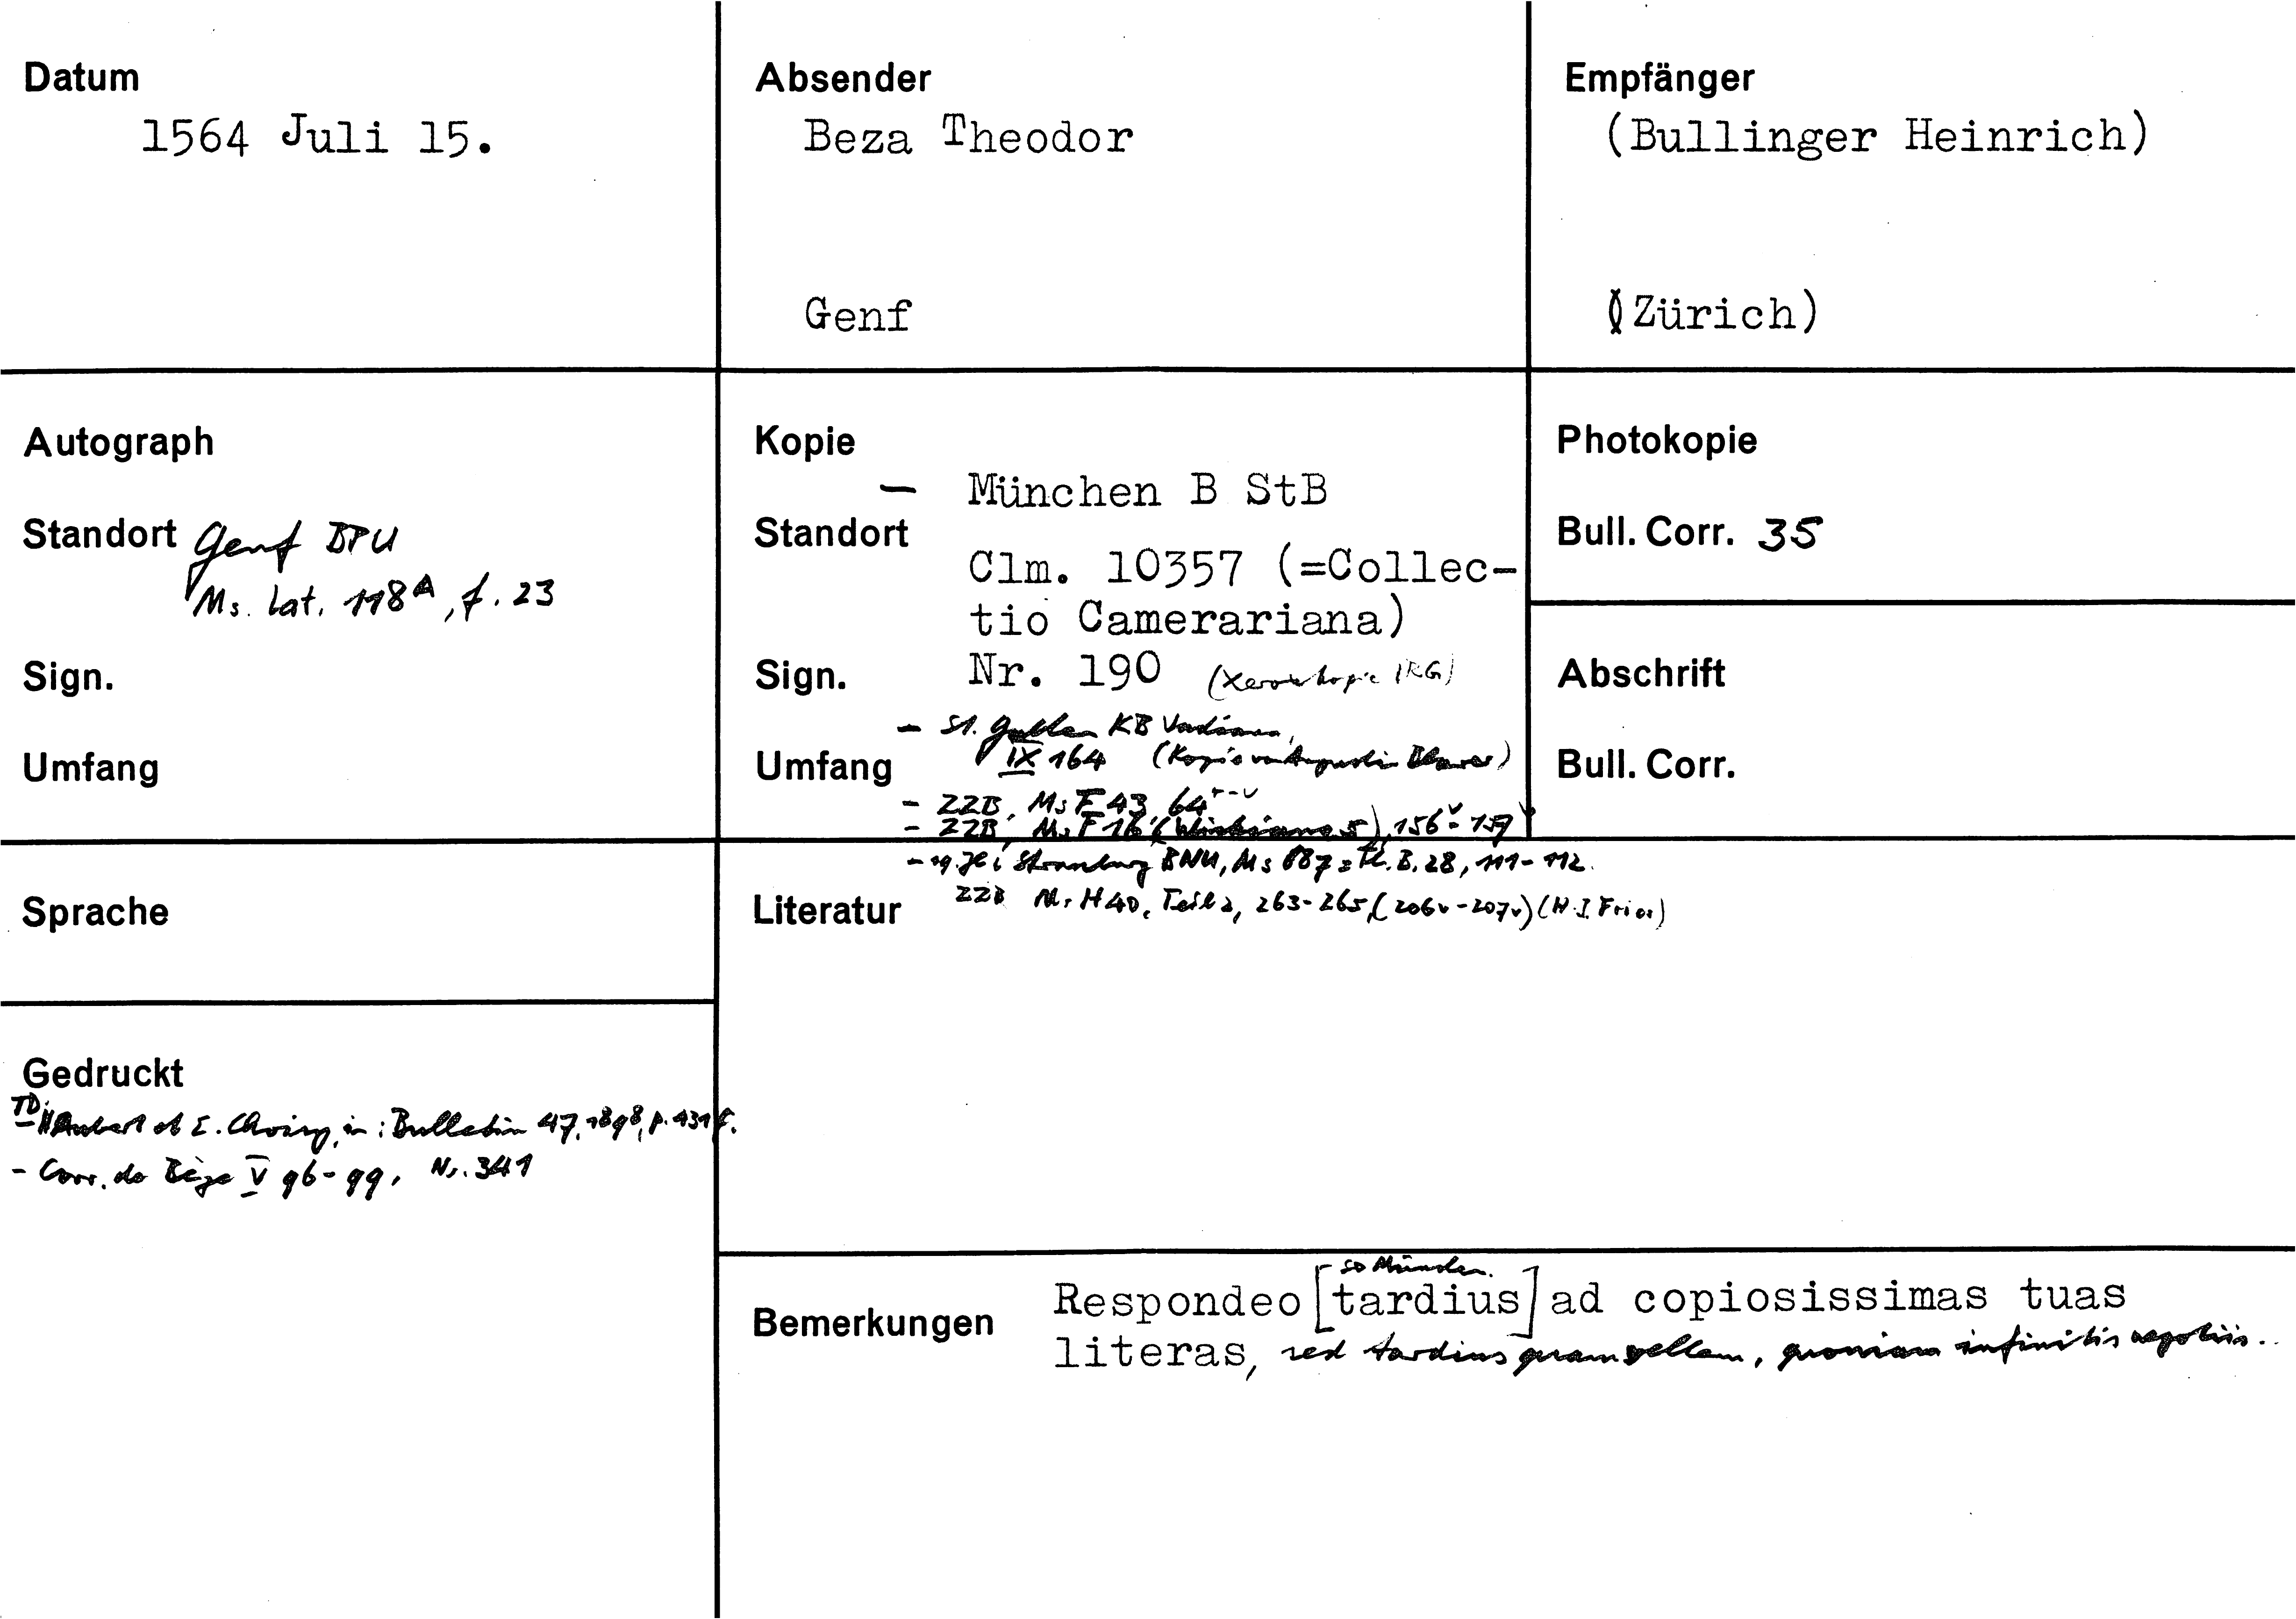 Datum
1564 Juli 15.
Absender
Beza Theodor
Genf
Empfänger
(Bullinger Heinrich)
(Zürich)
Autograph
Standort Genf BPU
Ms. Lat. 118A, f. 23
Sign.
Umfang
Kopie
- München B StB
Standort
Clm. 10357 (=Collec-
tio Camerariana)
Sign. Nr. 190 (Xerokopie IRG)
- St. Gallen KB Vadiana,
Umfang IX 164 (Kopie von Augustin Blarer)
- ZZB, Ms F 43, 64 r-v
- ZZB, Ms F 16 (Wickiana 5), 156v-157v
- 19. Jh: Strassburg BNU, Ms 687 = Th. B. 28, 111-112.
ZZB Ms H 40, Teil 2, 263-265, (206v-207v) (H. J. Fries)
Photokopie
Bull. Corr. 35
Abschrift
Bull. Corr.
Sprache
Literatur
Gedruckt
TD:
- H. Aubert et E. Choisy, in: Bulletin 47, 1898, p. 431 f.
- Corr. de Bèze V 96-99, Nr. 341
Bemerkungen
so München.
Respondeo [tardius] ad copiosissimas tuas
literas, sed tardius quam vellem, quoniam infinitis negotiis..